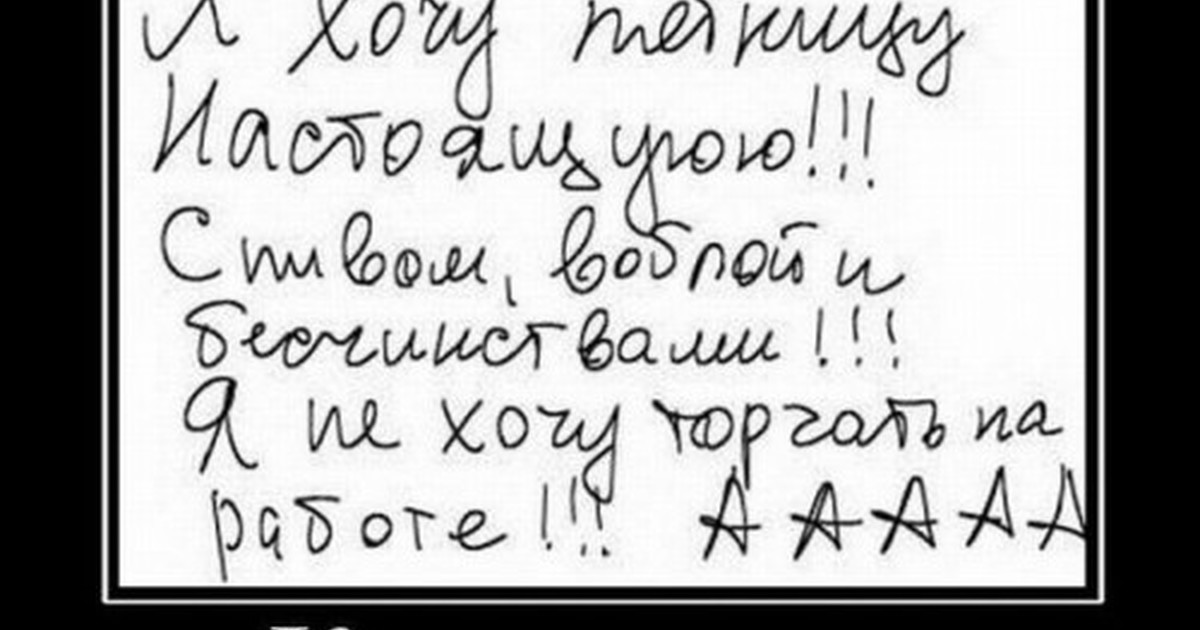 Я хочу пятницу
Настоящую!!!
С пивом, воблой и
бесчинствами!!!
Я не хочу торчать на
работе!!! А А А А А